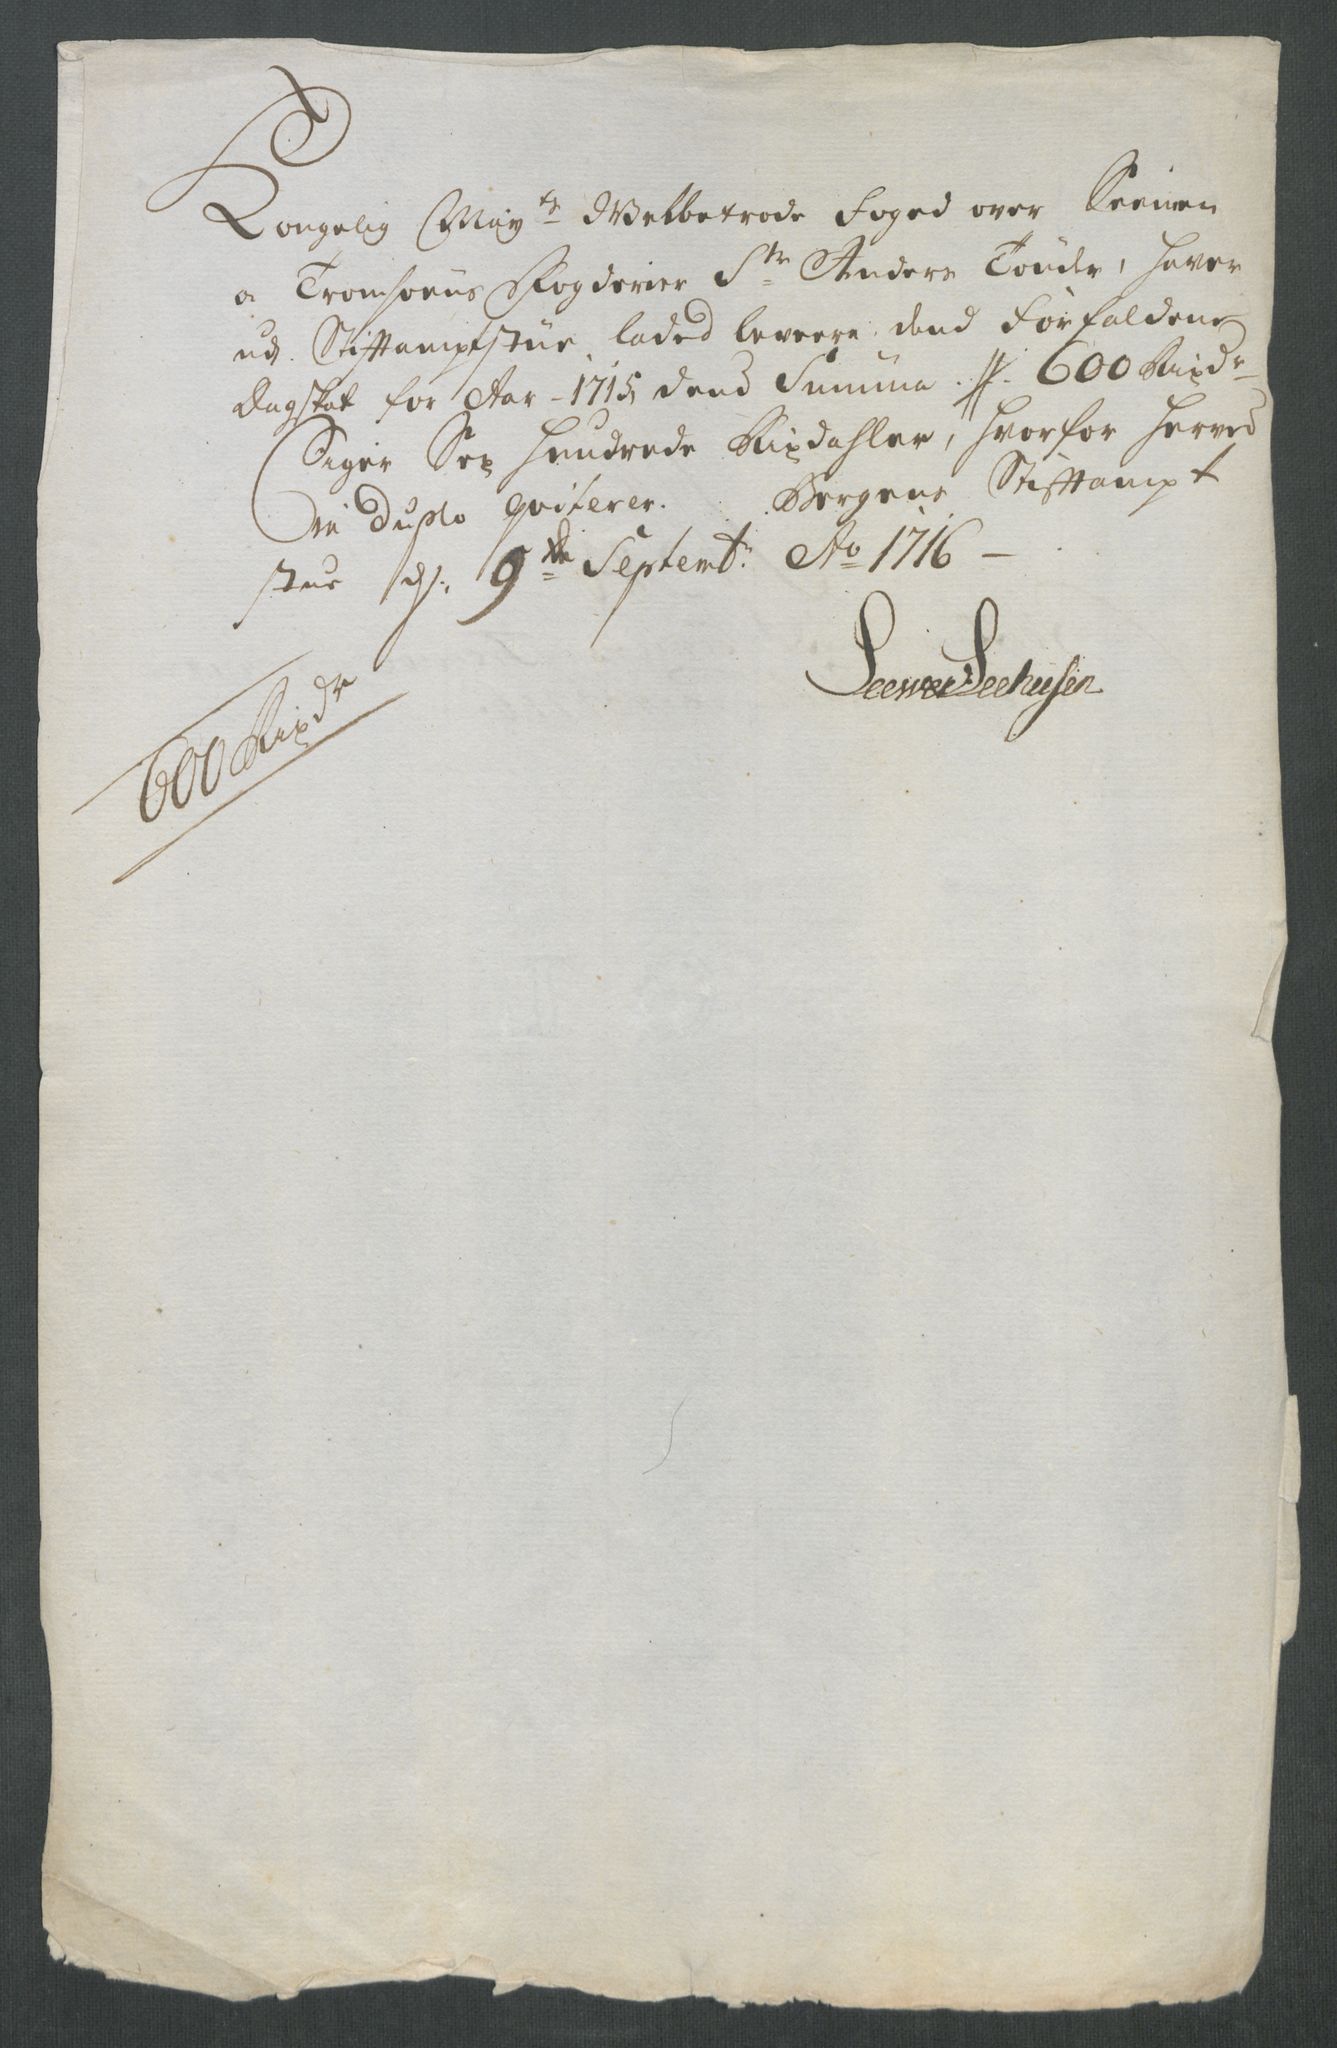 Kongelig May.ts Welbetrode Foged over Seenien
a Tromsøens Fogderier Sr. Anders Tønder, haver
udj Stiftamptstue laded levere dend Forfaldene
Dagskat for Aar 1715, dend Summa 600 Rixdr
Siger Sex hundrede Rixdahler, hvorfor herved
in duplo qviterer. Bergens Stiftampt
stue d. 9de Septembr. Ao 1716
Seewer Seehusen
600 Rixdr